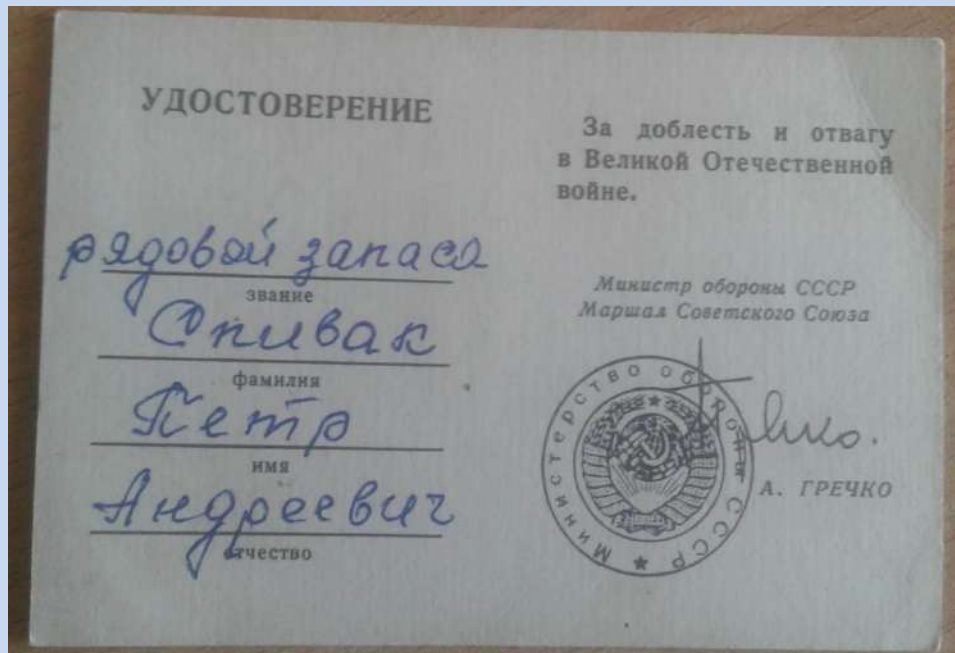 УДОСТОВЕРЕНИЕ
рядовой запаса
звание
Спивак
фамилия
Петр
имя
Андреевич
отчество
За доблесть и отвагу
в Великой Отечественной
войне.
Министр обороны СССР
Маршал Советского Союза
А. ГРЕЧКО
Министерство обороны СССР